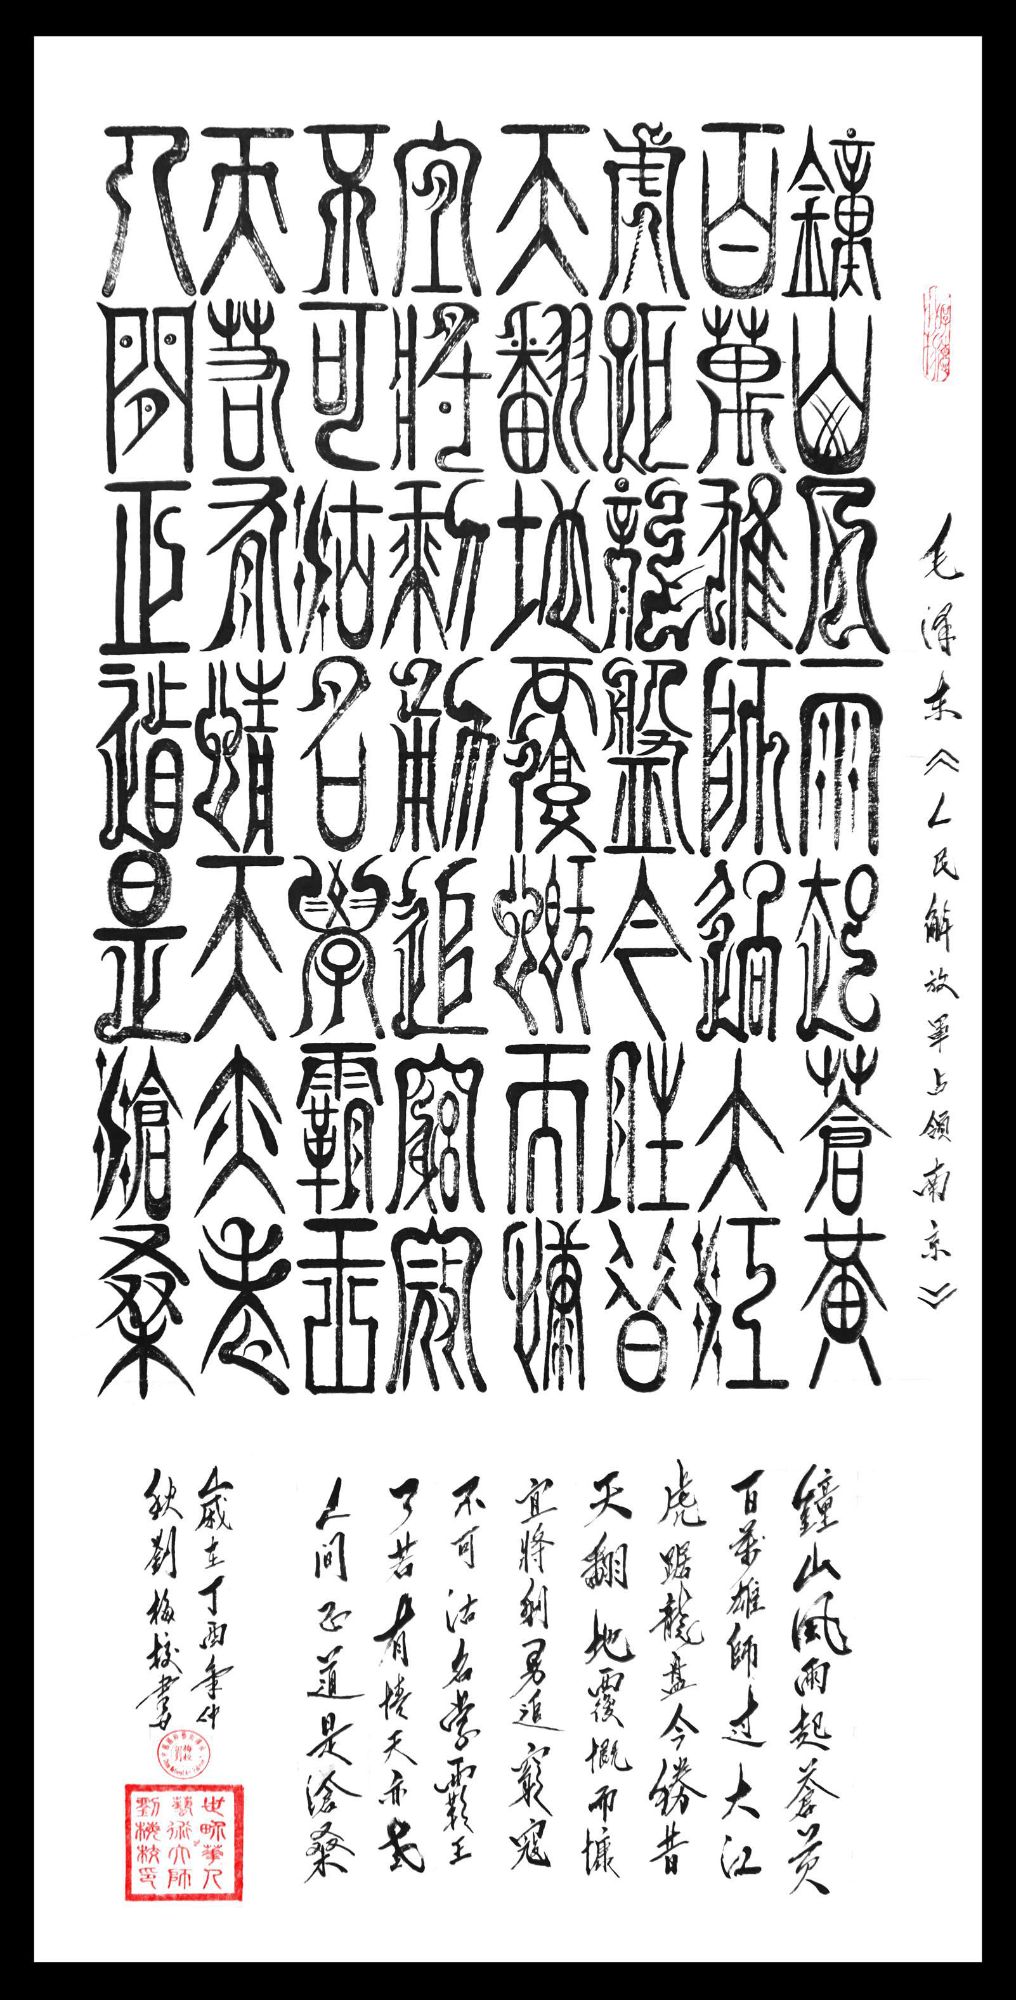 毛泽东《人民解放军占领南京》
鐘山風雨起蒼黃
百萬雄師過大江
虎距龍盤今胜昔
天翻地覆慨而慷
宜將剩勇追窮寇
不可沽名學霸王
天若有情天亦老
人間正道是滄桑
鐘山風雨起蒼黃
百萬雄師过大江
虎踞龍盘今勝昔
天翻地覆慨而慷
宜將剩勇追窮寇
不可沽名學霸王
天若有情天亦老
人間正道是滄桑
歲在丁酉年仲
秋劉梅校書
世界華人
藝術大師
劉梅校印